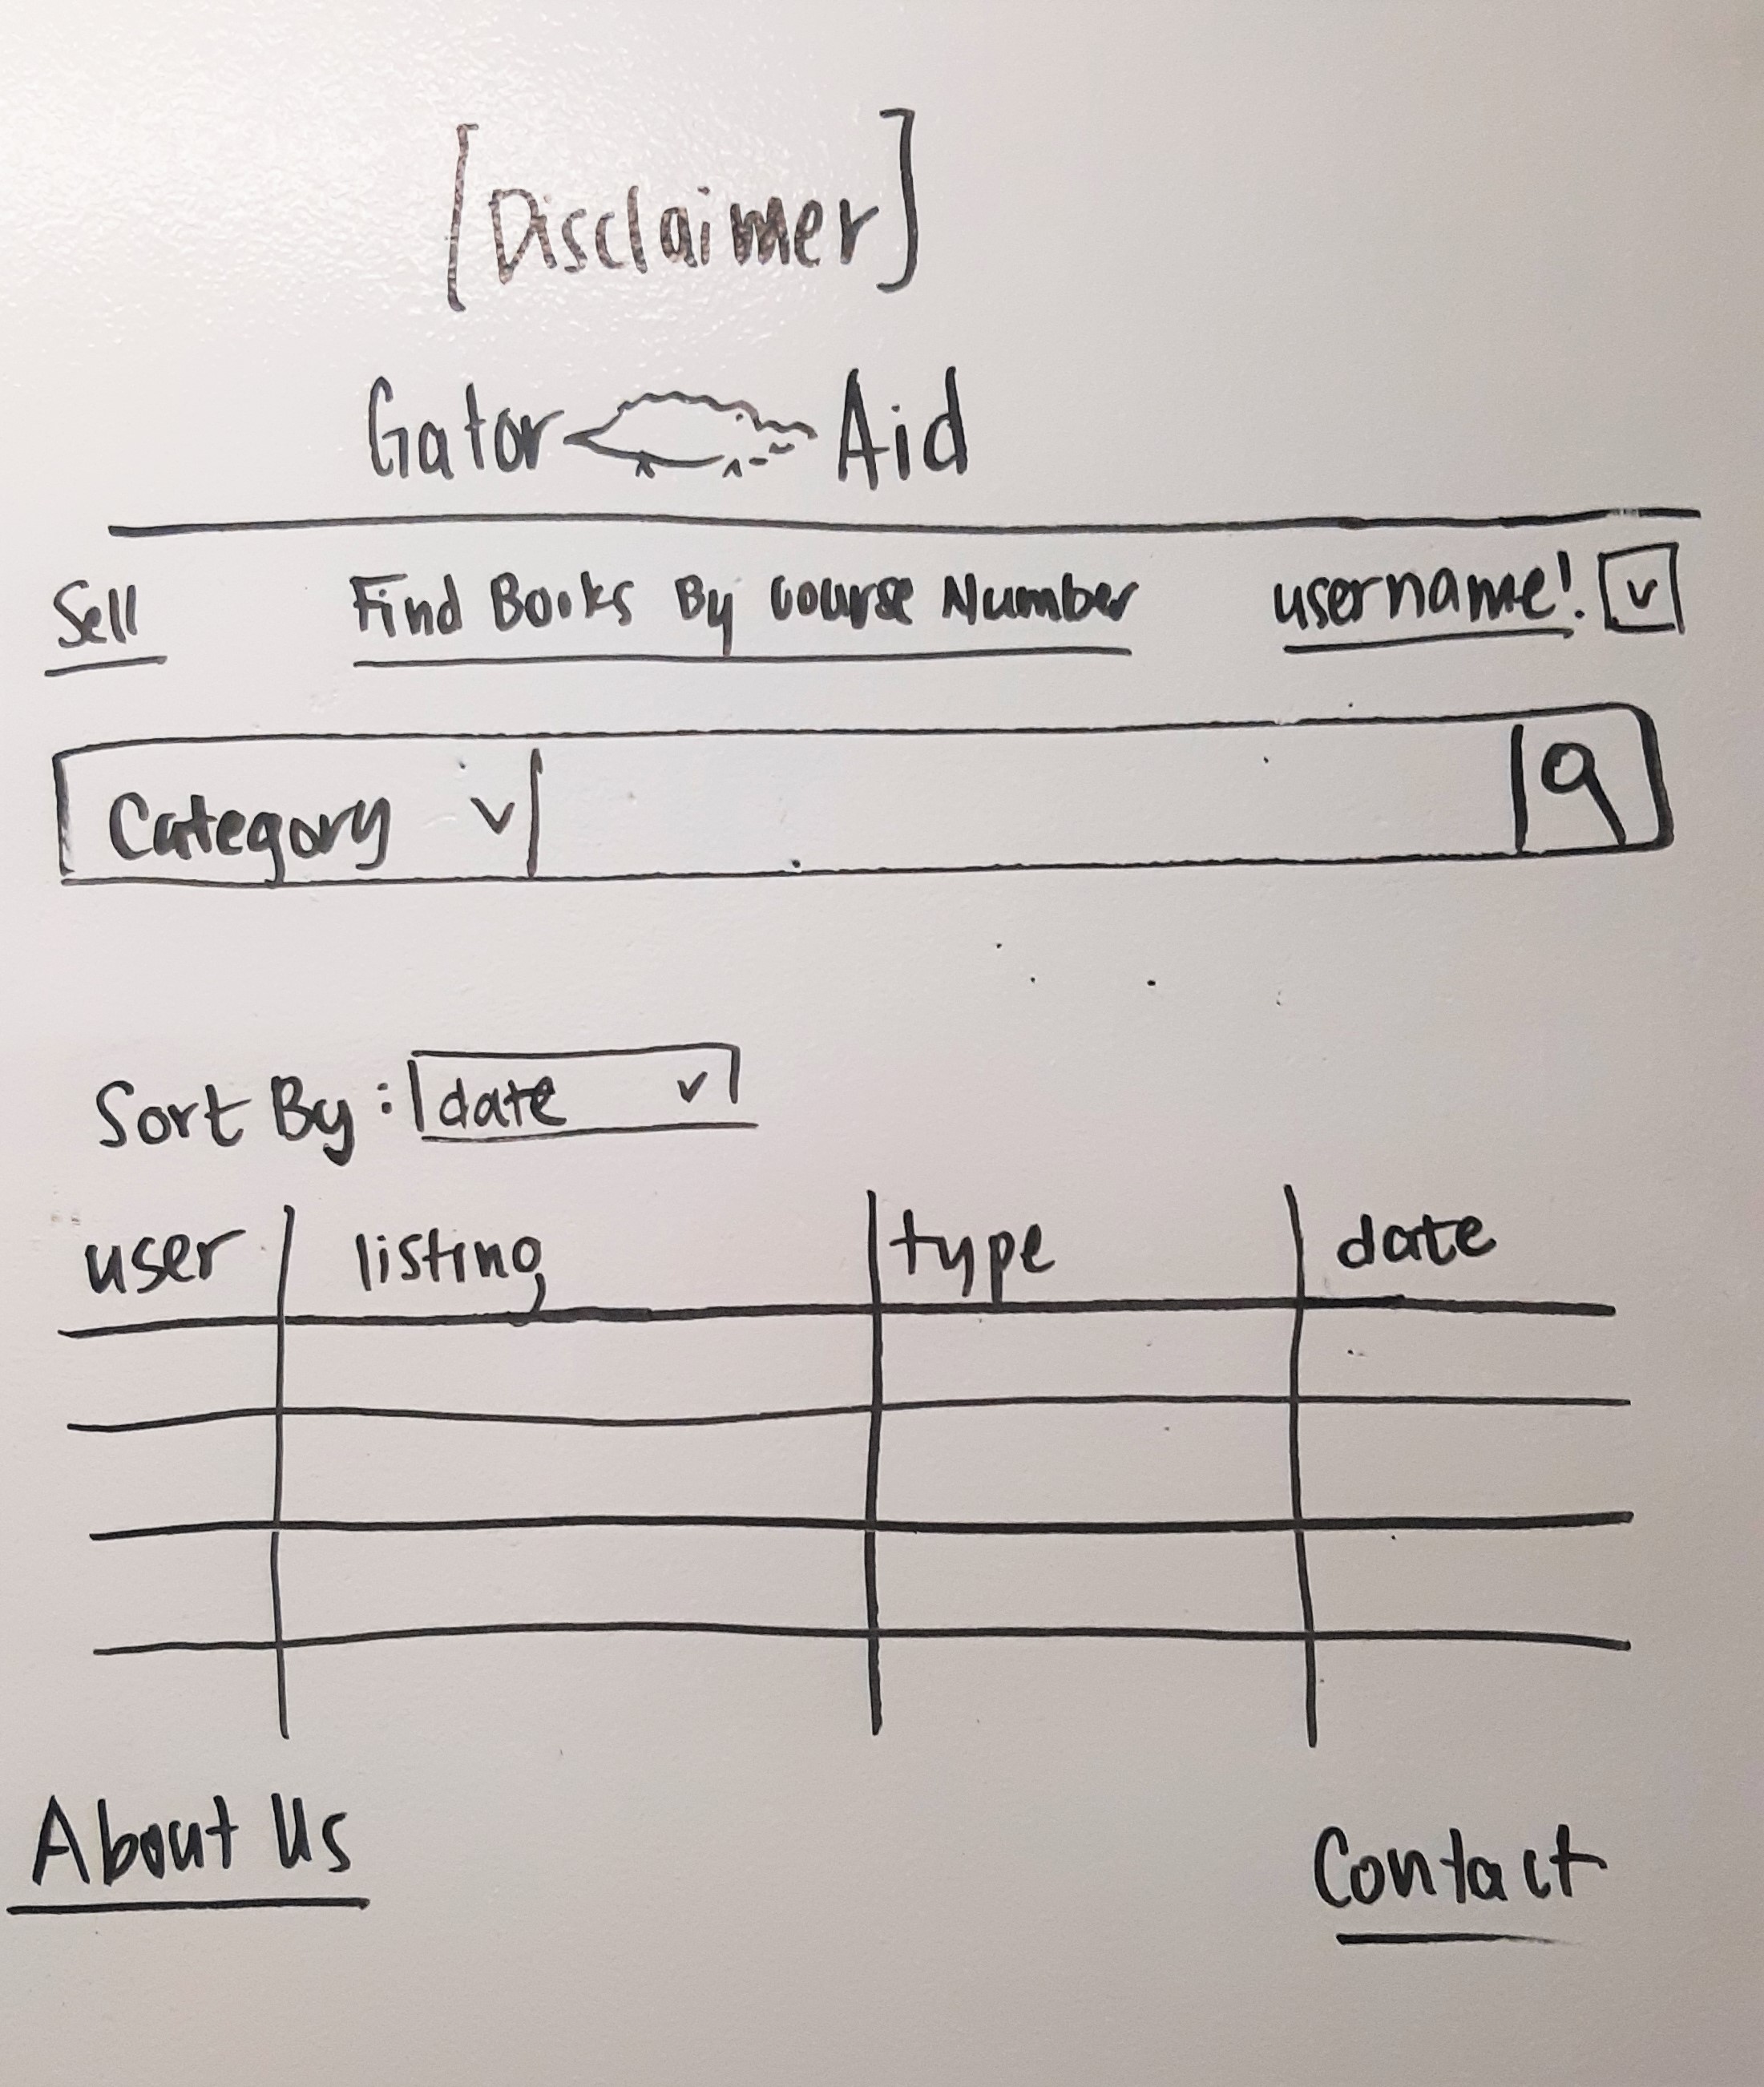 [Disclaimer]
Gator Aid
Sell Find Books By Course Number username! v
Category v
Sort By: date v
user listing type date
About Us Contact